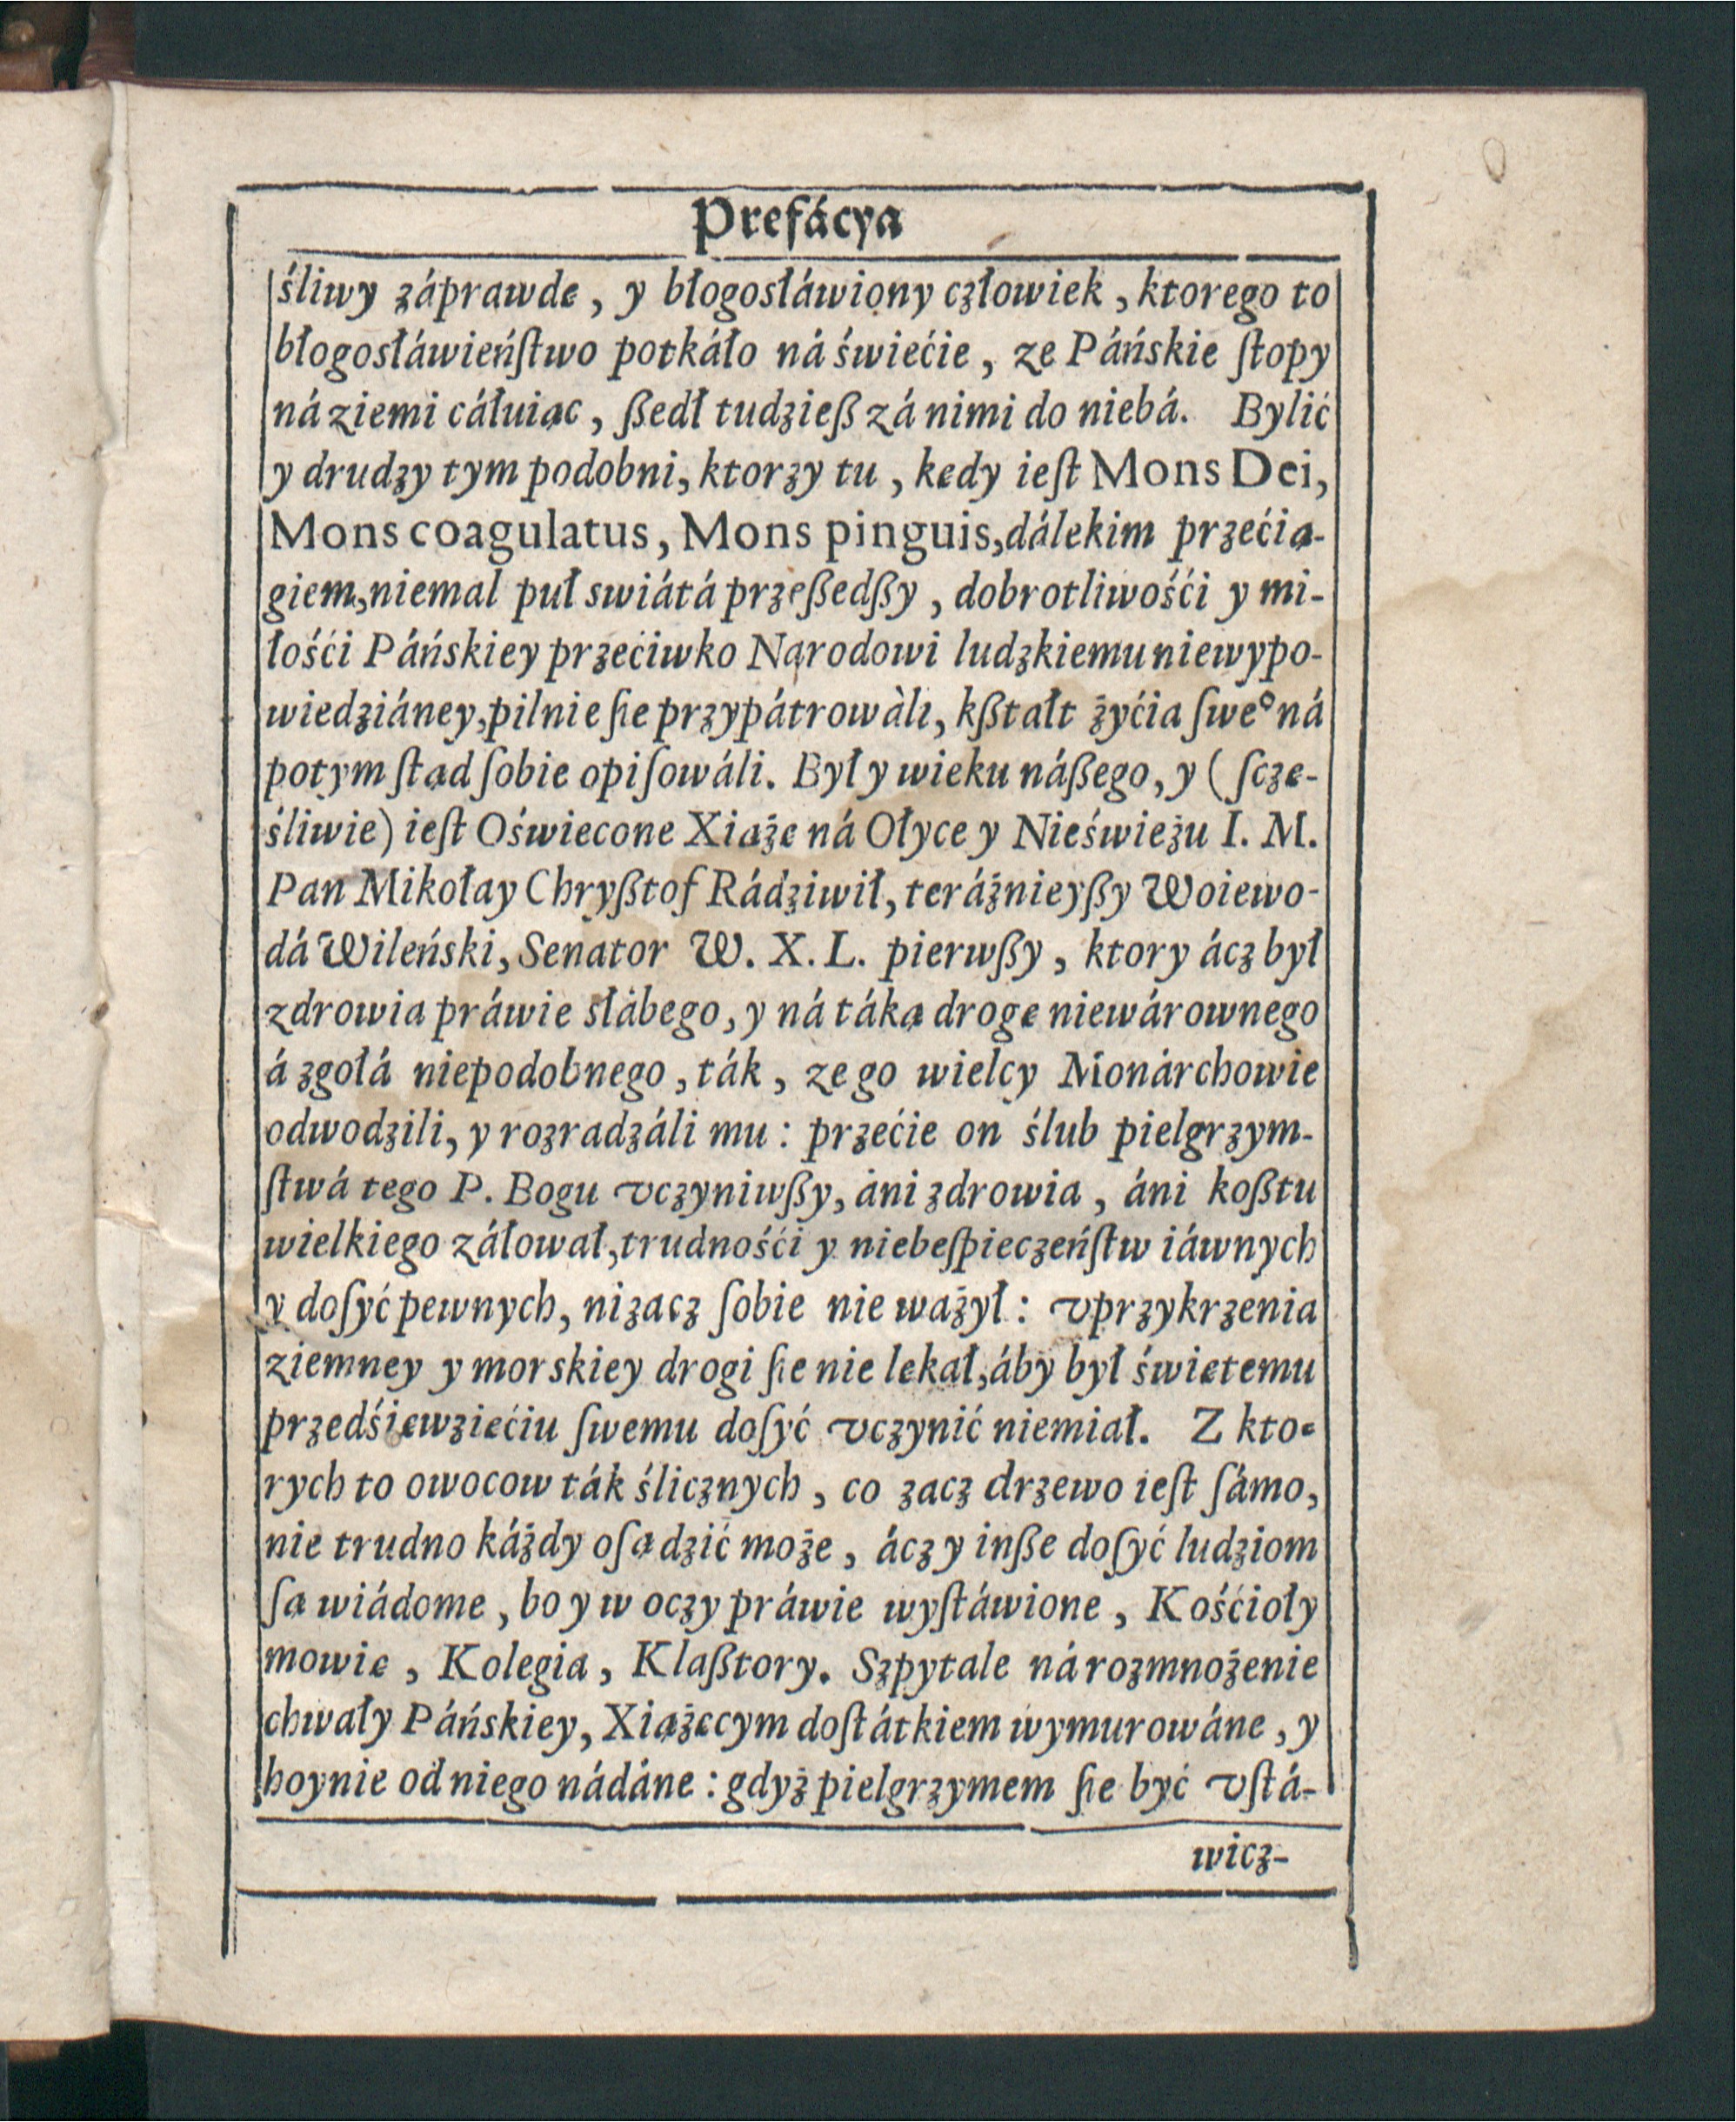 Prefácya
śliwy záprawdę, y błogosłáwiony człowiek, ktorego to
błogosłáwieńſtwo potkáło ná świećie, ze Páńskie ſtopy
ná ziemi cáłuiąc, ßedł tudzieß zá nimi do niebá. Bylić
y drudzy tym podobni, ktorzy tu, kędy ieſt Mons Dei,
Mons coagulatus, Mons pinguis, dálekim przećią-
giem, niemal puł swiátá przeßedßy, dobrotliwośći y mi-
łośći Páńskiey przećiwko Narodowi ludzkiemu niewypo-
wiedziáney, pilnie ſię przypátrowàli, kßtałt żyćia ſweº ná
potym ſtąd ſobie opiſowáli. Był y wieku náßego, y (ſczę-
śliwie) ieſt Oświecone Xiążę ná Ołyce y Nieświeżu I. M.
Pan Mikołay Chryßtof Rádziwił, teráżnieyßy Woiewo-
dá Wileński, Senator W. X. L. pierwßy, ktory ácz był
zdrowia práwie słábego, y ná táką drogę niewárownego
á zgołá niepodobnego, ták, ze go wielcy Monárchowie
odwodzili, y rozradzáli mu: przećie on ślub pielgrzym-
ſtwá tego P. Bogu vczyniwßy, áni zdrowia, áni koßtu
wielkiego záłował, trudnośći y niebeſpieczeńſtw iáwnych
y doſyć pewnych, nizacz ſobie nie ważył: vprzykrzenia
ziemney y morskiey drogi ſię nie lękał, áby był świętemu
przedśięwzięćiu ſwemu doſyć vczynić niemiał. Z kto-
rych to owocow ták ślicznych, co zacz drzewo ieſt ſámo,
nie trudno káżdy oſądzić może, ácz y inße doſyć ludziom
ſą wiádome, bo y w oczy práwie wyſtáwione, Kośćioły
mowię, Kolegia, Klaßtory. Szpytale ná rozmnożenie
chwały Páńskiey, Xiążęcym doſtátkiem wymurowáne, y
hoynie od niego nádáne: gdyż pielgrzymem ſię być vſtá-
wicz-